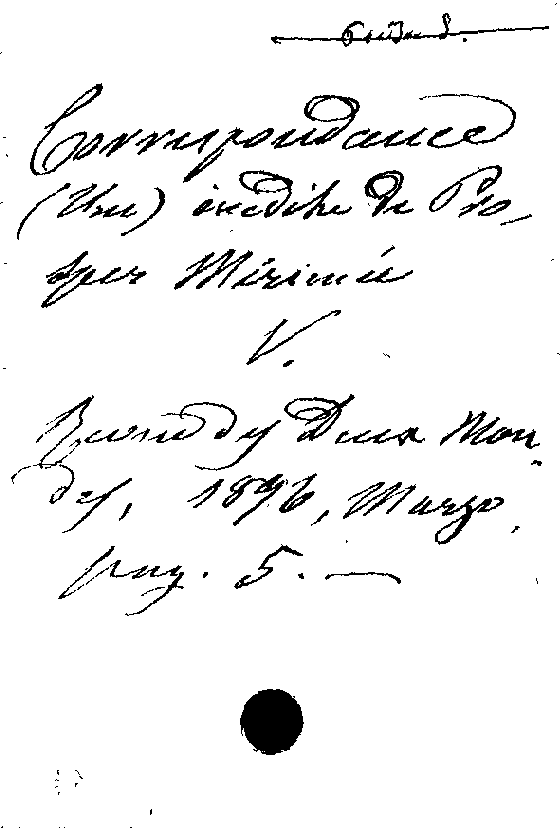 Correspondance
(Une) inédite de Pro-
sper Mérimée
V.
Revue des Deux Mon-
des, 1896, Marzo,
pag. 5. —